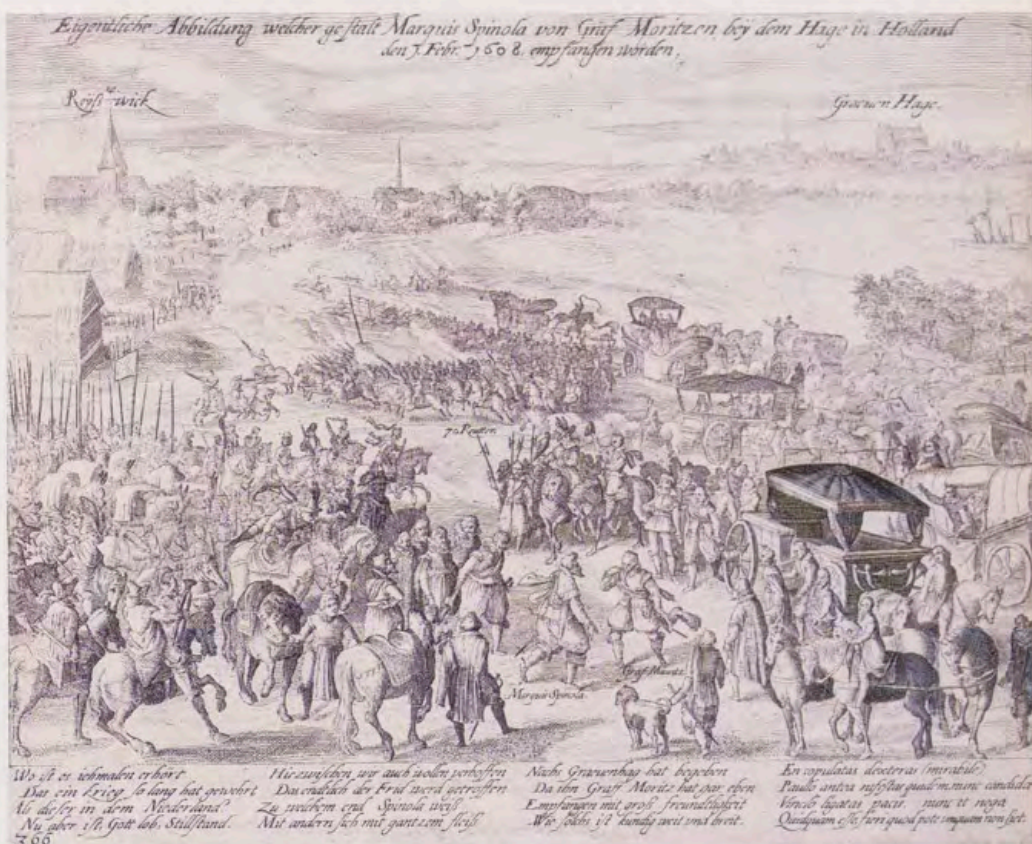 Eigentliche Abbildung welcher gestalt Marquis Spinola von Graf Moritzen bey dem Hage in Holland
den 1. Febr. 1608. empfangen worden.
Reyst wick
Graeuen Hage.
70 Reutter
Graff Mauritz
Marquis Spinola
Wo ist es iehmalen erhört
Das ein krieg so lang hat gewehrt
Als dieser in dem Niederland?
Nu aber ist, Gott lob, Stillstand.
Hiezwischen wir auch wollen verhoffen
Das endlich der Frid werd getroffen
Zu welchem end Spinola weiß
Mit andern sich mit gantzem fleiß
Nachs Graeuenhag hat begeben
Da ihn Graff Moritz hat gar eben
Empfangen mit groß freundtligkeit
Wie solchs ist kundig weit vnd breit.
En copulatas dexteras (mirabile)
Paullo antea infestas quidem, nunc candida
Vinclo ligatas pacis. nunc it nega
Quidquam esse, fieri quod pote umquam non siet.
366